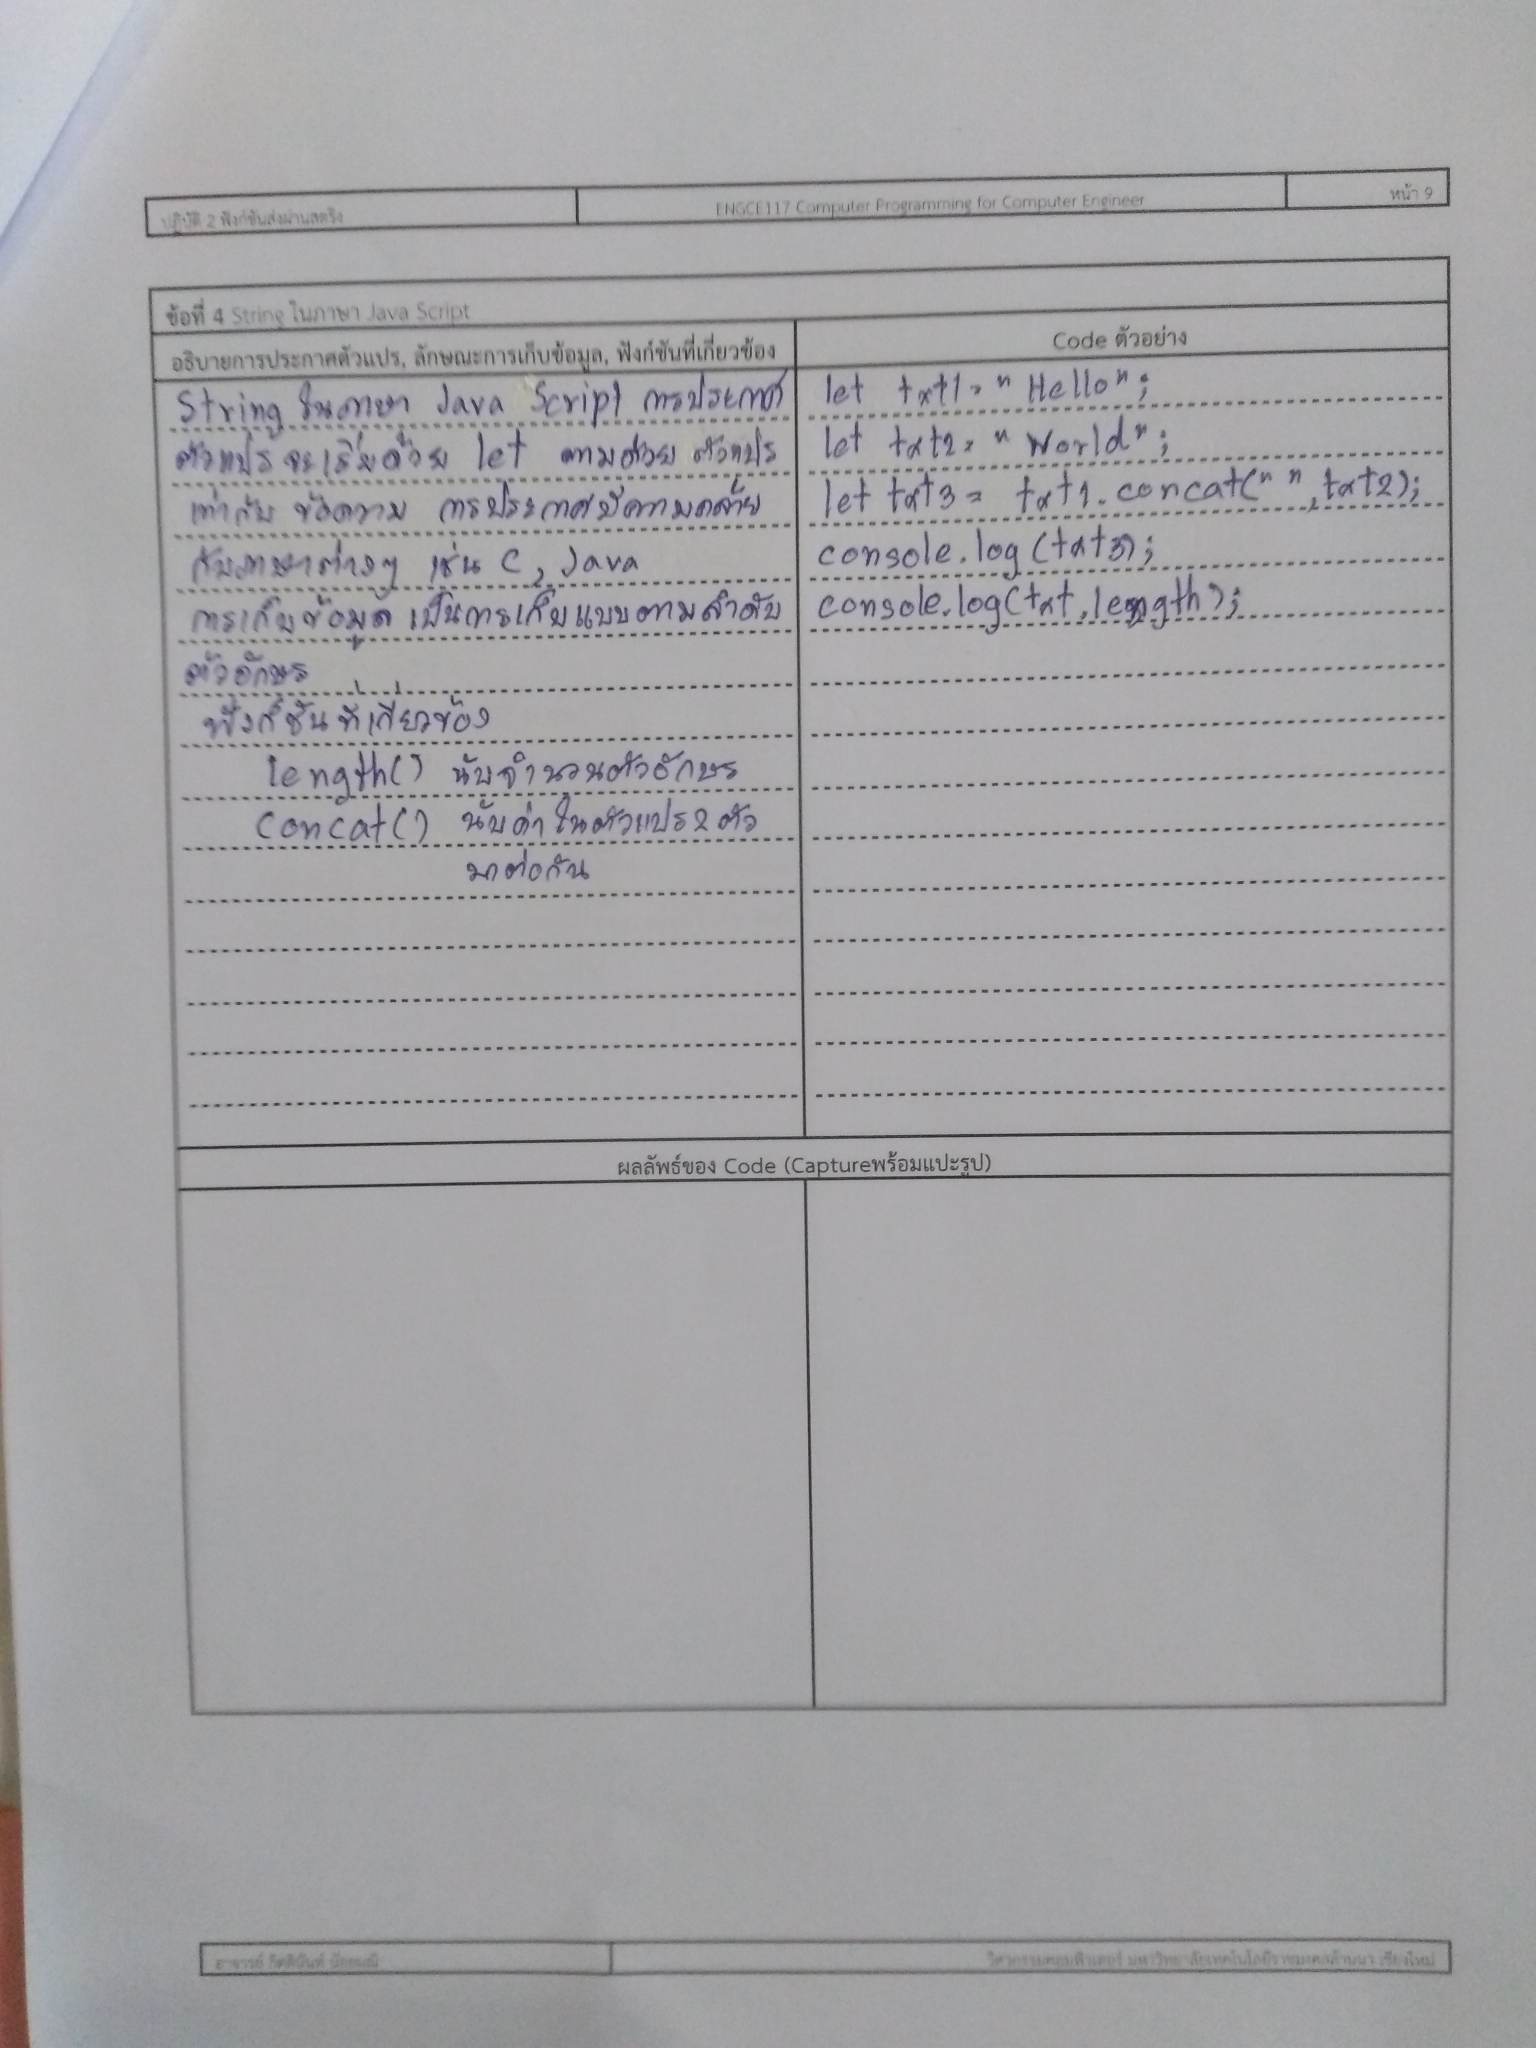 ปฏิบัติ 2 ฟังก์ชันส่งผ่านสตริง
ENGCE117 Computer Programming for Computer Engineer
หน้า 9
ข้อที่ 4 String ในภาษา Java Script
อธิบายการประกาศตัวแปร, ลักษณะการเก็บข้อมูล, ฟังก์ชันที่เกี่ยวข้อง
String ในภาษา Java Script การประกาศ
ตัวแปรจะเริ่มด้วย let ตามด้วย ตัวแปร
เท่ากับ ข้อความ การประกาศมีความคล้าย
กับภาษาต่างๆ เช่น C, Java
การเก็บข้อมูล เป็นการเก็บแบบตามลำดับ
ตัวอักษร
ฟังก์ชันที่เกี่ยวข้อง
length() นับจำนวนตัวอักษร
concat() นับค่าในตัวแปร 2 ตัว
มาต่อกัน
Code ตัวอย่าง
let txt1 = "Hello";
let txt2 = "World";
let txt3 = txt1.concat(" ",txt2);
console.log(txt3);
console.log(txt.length);
ผลลัพธ์ของ Code (Captureพร้อมแปะรูป)
อาจารย์
วิศวกรรมคอมพิวเตอร์ มหาวิทยาลัยเทคโนโลยีราชมงคลล้านนา เชียงใหม่